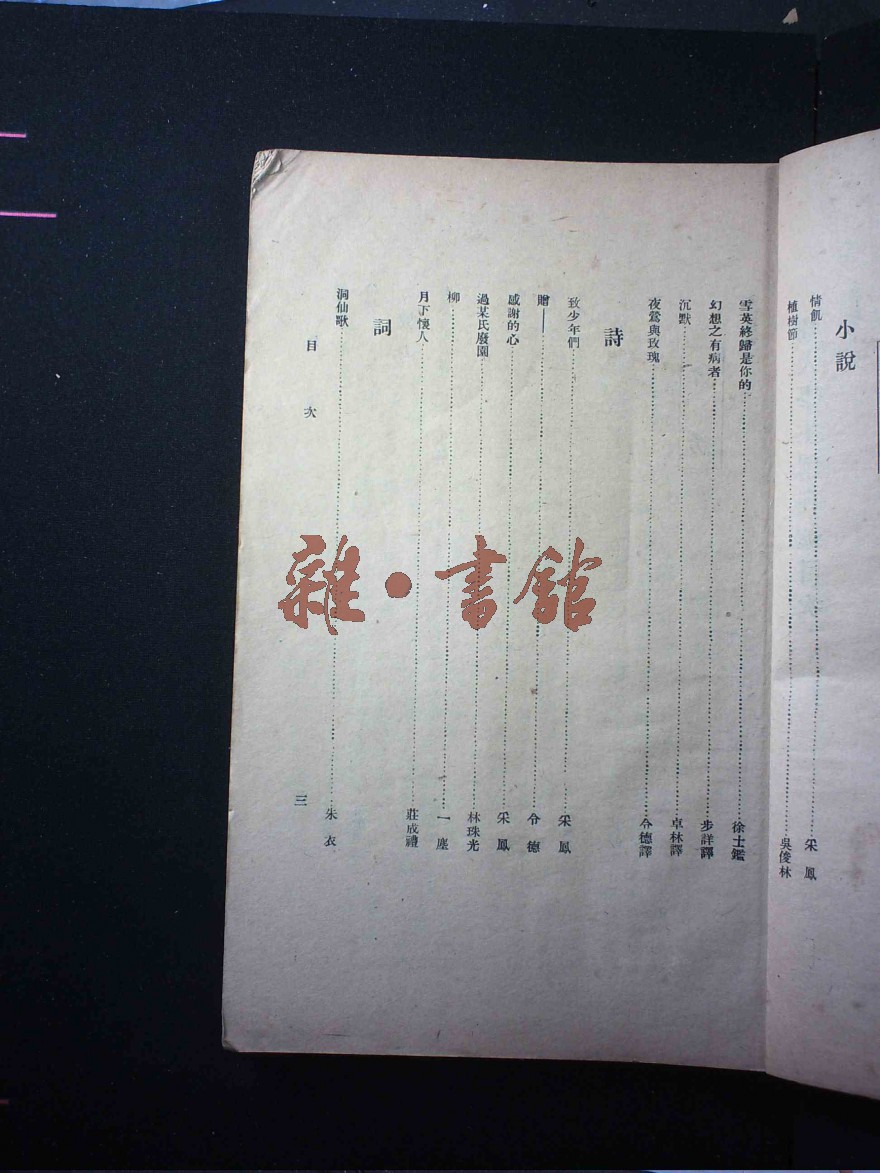 小說
情飢…采鳳
植樹節…吳俊林
雪英終歸是你的…徐士鑑
幻想之有病者…步詳譯
沉默…卓林譯
夜鶯與玫瑰…令德譯
詩
致少年們…采鳳
贈——…令德
感謝的心…采鳳
過某氏廢園…林珠光
柳…一塵
月下懷人…莊成禮
詞
洞仙歌…朱衣
目次
三
雜·書館